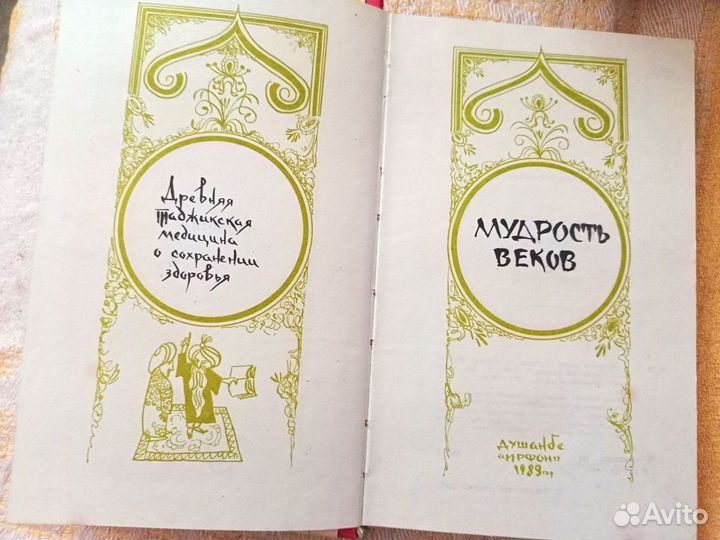 Древняя
Таджикская
медицина
о сохранении
здоровья
МУДРОСТЬ
ВЕКОВ
ДУШАНБЕ
"ИРФОН"
1989 г.
Avito